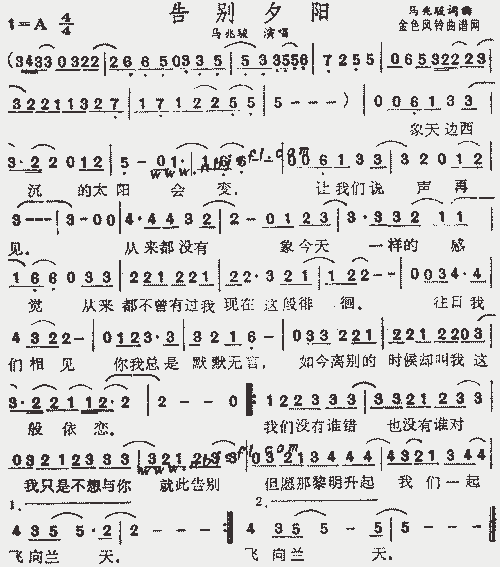 告别夕阳
1=A 4/4
马兆骏 演唱
马兆骏词曲
金色风铃曲谱网
(3433 0322 | 2 6 6 5 0 3 | 3 5 · 5 | 5 3 3556 | 7 2 5 5 | 0 6 5 3 2 2 2 3
3 2 2 1 1 3 2 7 | 1 7 1 2 2 5 5 | 5 - - - ) | 0 0 6 1 3 3
象天边西
3 · 2 2 0 1 2 | 5 - 0 1 · | 1 6 6 | 0 0 6 1 3 3 | 3 2 0 1 2
沉 的太阳 会 变。 让我们说 声再
3 - - - | 3 - 0 0 | 4 · 4 4 3 2 | 2 - 0 1 2 3 | 3 · 3 3 2 1 1
见。 从来都没有 象今天 一样的 感
1 6 6 0 3 3 | 2 2 1 2 2 1 | 2 2 · 3 2 1 | 1 2 2 - - | 0 0 3 4 · 4
觉 从来 都不曾有过我 现在 这般徘 徊。 往日我
4 3 2 2 - | 0 1 2 3 · 3 | 3 2 1 6 - | 0 3 3 2 2 1 | 2 2 1 2 2 0 3
们相见 你我总是 默默无言， 如今离别的 时候却叫我 这
3 · 2 2 1 1 2 · 2 | 2 - - 0 | 1 2 2 3 3 3 | 3 3 3 2 2 1
般 依 恋。 我们没有谁错 也没有谁对
0 3 2 1 2 3 3 3 | 3 2 1 2 3 3 | 0 3 2 1 3 4 4 4 | 4 3 2 1 3 4 4
我只是不想与你 就此告别 但愿那黎明升起 我们一起
1. 2.
4 3 5 5 · 2 | 2 - - - | 4 3 5 5 · 5 | 5 - - -
飞向兰 天。 飞向兰 天。